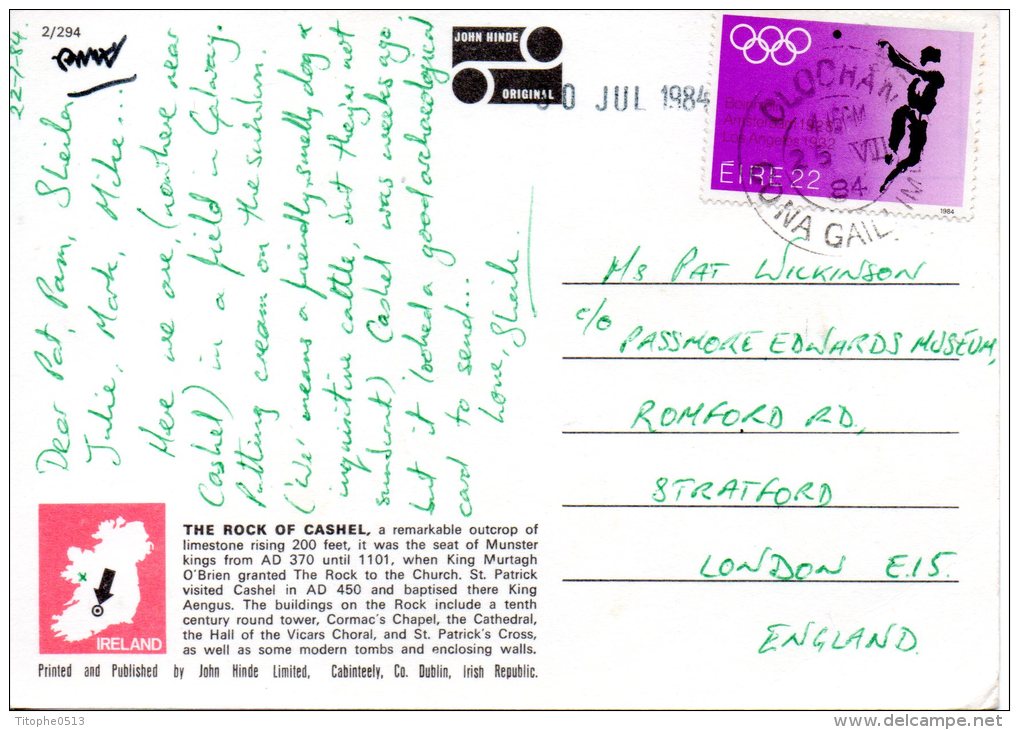 2/294
22-7-84.
Dear Pat, Pam, Sheila
Julie, Mark, Mike...
Here we are, (nowhere near
Cashel) in a field in Galway.
Putting cream on the sunburn.
('We' means a friendly, smelly dog &
inquisitive cattle, but they're not
sunburnt) Cashel was weeks ago
but it looked a good archaeological
card to send...
Love, Sheila
JOHN HINDE
ORIGINAL
30 JUL 1984
CLOCHAN
25 VII
84
CONA GAIL
Amsterdam 1928
Los Angeles 1932
ÉIRE 22
1984
Ms PAT WILKINSON
c/o
PASSMORE EDWARDS MUSEUM,
ROMFORD RD.,
STRATFORD
LONDON E.15.
ENGLAND.
IRELAND
THE ROCK OF CASHEL, a remarkable outcrop of
limestone rising 200 feet, it was the seat of Munster
kings from AD 370 until 1101, when King Murtagh
O'Brien granted The Rock to the Church. St. Patrick
visited Cashel in AD 450 and baptised there King
Aengus. The buildings on the Rock include a tenth
century round tower, Cormac's Chapel, the Cathedral,
the Hall of the Vicars Choral, and St. Patrick's Cross,
as well as some modern tombs and enclosing walls.
Printed and Published by John Hinde Limited, Cabinteely, Co. Dublin, Irish Republic.
Titophe0513
delcampe.net